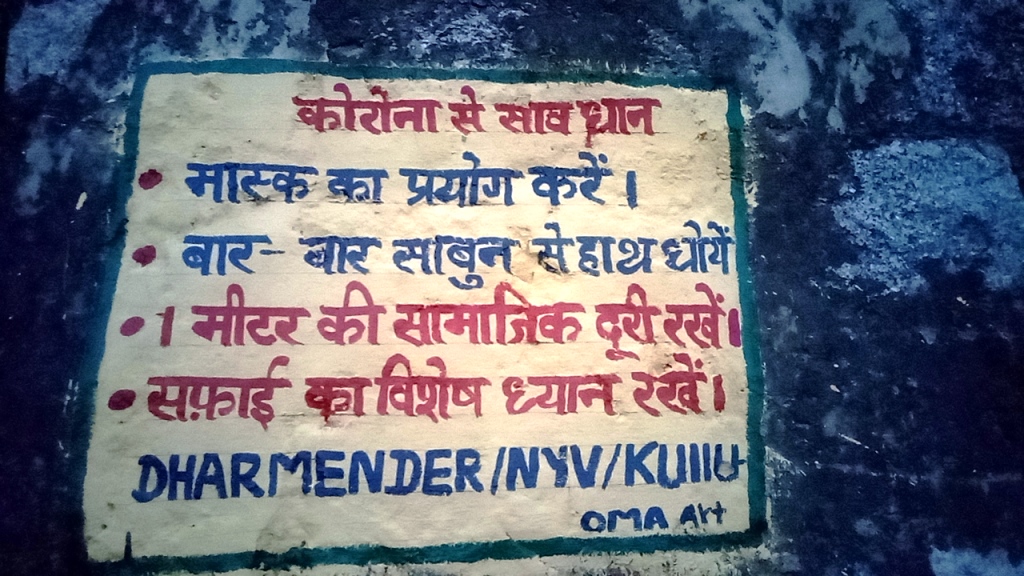 कोरोना से सावधान
• मास्क का प्रयोग करें।
• बार-बार साबुन से हाथ धोयें
• 1 मीटर की सामाजिक दूरी रखें।
• सफ़ाई का विशेष ध्यान रखें।
DHARMENDER/NYV/KUllU
OMA Art